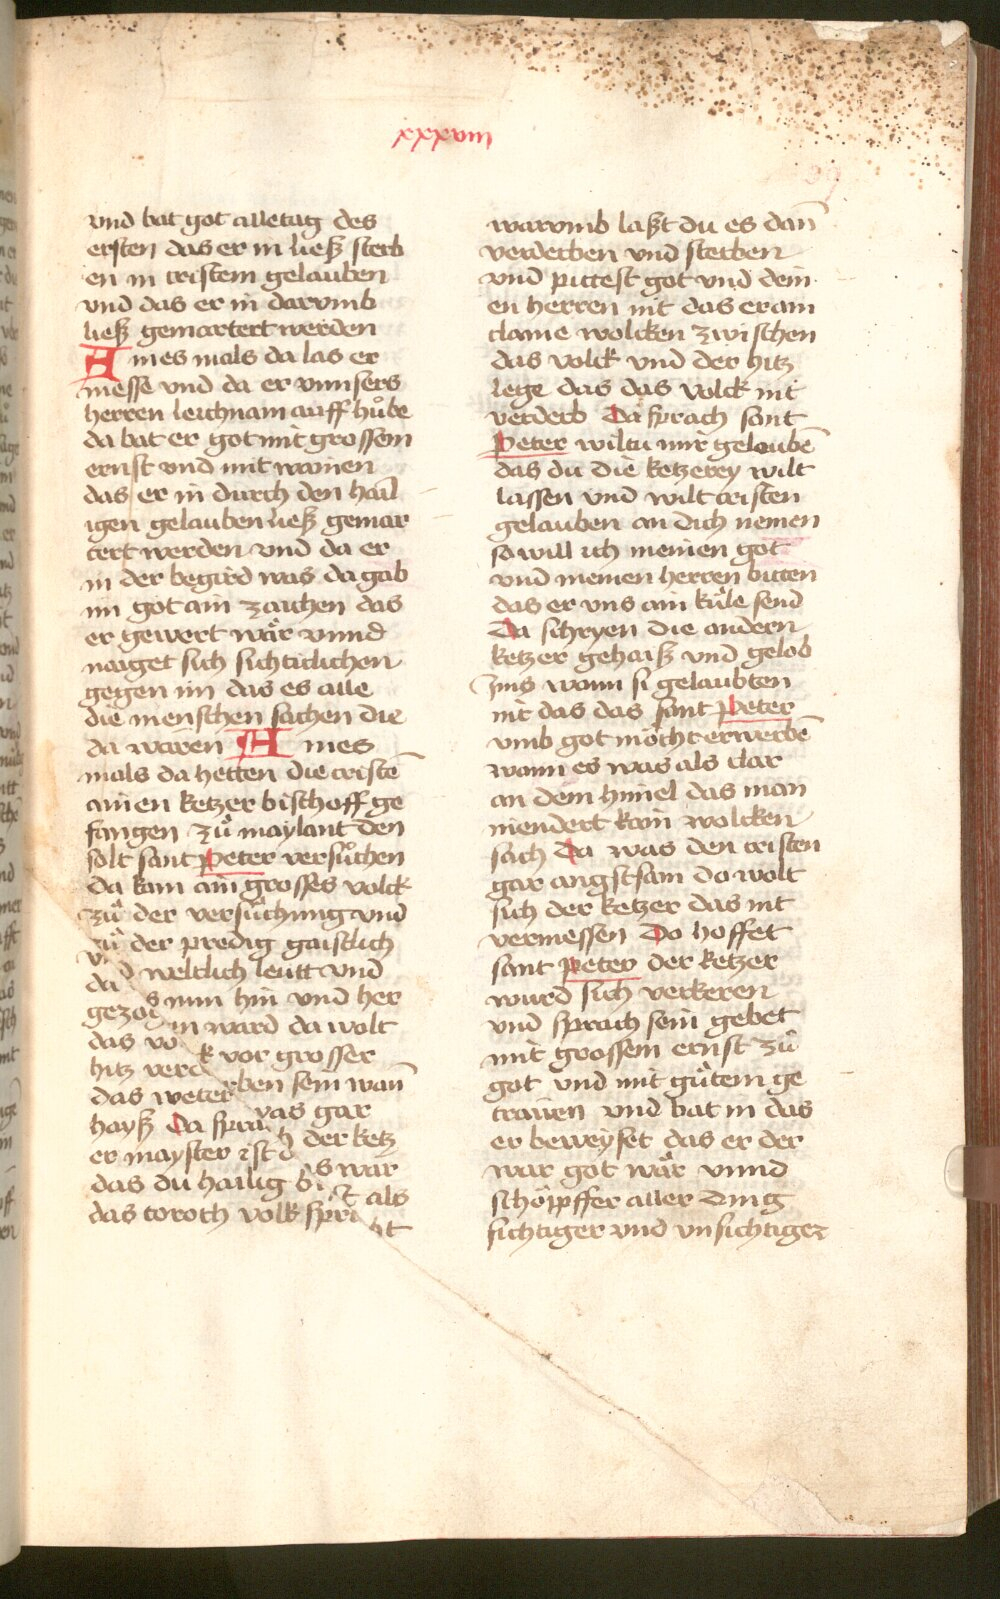 xxxviii
vnd bat got alletag des
ersten das er in ließ sterb
en in cristem gelauben
vnd das er in darvmb
ließ gemartert werden
A ines mals da las er
messe vnd da er vnnsers
herren leichnam auff hůbe
da bat er got mit grossem
ernst vnd mit wainen
das er in durch den hail
igen gelauben ließ gemar
tert werden vnd da er
in der begird was da gab
im got ain zaichen das
er gewert wär vnnd
naiget sich sichticlichen
gegen im das es alle
die menschen sachen die
da waren A ines
mals da hetten die cristē
ainen ketzer bischoff ge
fangen zů maylant den
solt sant Peter versůchen
da kam ain grosses volck
zů der versůchnng vnd
zů der predig gaistlich
vnd weltlich leütt vnd
da s nun hin vnd her
gezogen ward da wolt
das volk vor grosser
hitz verderben sein wañ
das weter was gar
hayß Da sprach der ketz
er mayster ist das war
das du hailig bist als
das toroth volk spricht
warvmb laßt du es dañ
verderben vnd sterben
vnd pittest got vnd dein
en herren nit das er ain
claine wolcken zwischen
das volck vnd der hitz
lege das das volck nit
verderb Da sprach sant
Peter wiltu mir gelaubē
das du die ketzerey wilt
lassen vnd wilt cristen
gelauben an dich nemen
so will ich meinen got
vnd meinen herren bitten
das er vns ain küle send
Da schryen die andern
ketzer gehaiß vnd gelob
ims wann si gelaubten
nit das das sant Peter
vmb got möcht erwerbē
wann es was als clar
an dem himel das man
niendert kain wolcken
sach Da was den cristen
gar angstsam do wolt
sich der ketzer das nit
vermessen Do hoffet
sant Peter der ketzer
wurd sich verkeren
vnd sprach sein gebet
mit grossem ernst zů
got vnd mit gůtem ge
trauen vnd bat in das
er beweyset das er der
war got wär vnnd
schöpffer aller ding
sichtiger vnd vnsichtiger